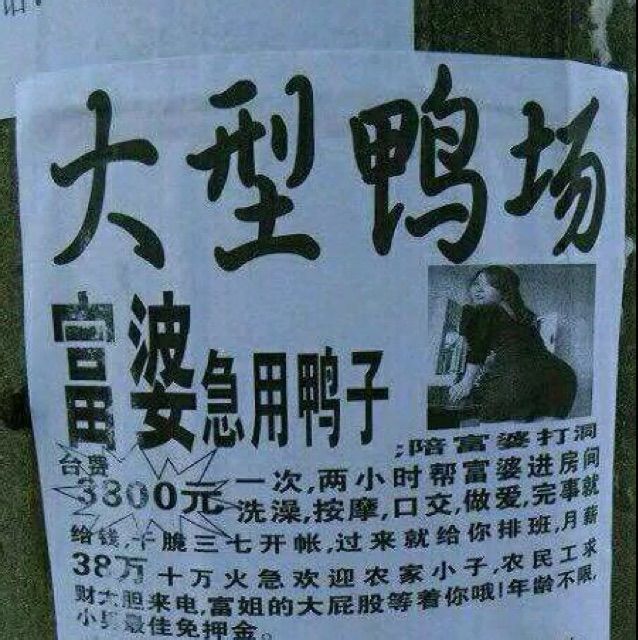 大型鸭场
富婆急用鸭子
陪富婆打洞
台费
3800元一次,两小时帮富婆进房间
洗澡,按摩,口交,做爱,完事就
给钱,干脆三七开帐,过来就给你排班,月薪
38万十万火急欢迎农家小子,农民工求
财大胆来电,富姐的大屁股等着你哦!年龄不限,
小 最佳免押金。